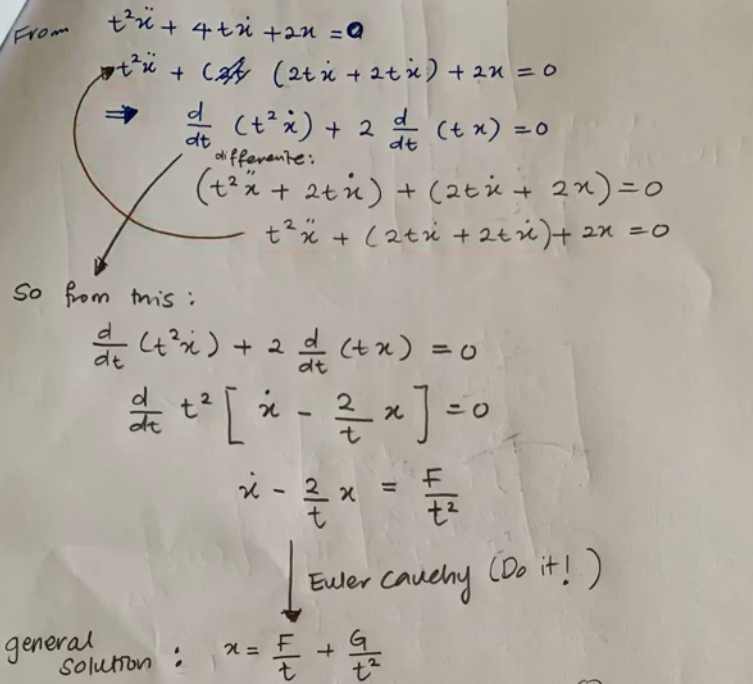 From t²ẍ + 4tẋ + 2x = 0
t²ẍ + (2tẋ + 2tẋ) + 2x = 0
⇒ d/dt (t²ẋ) + 2 d/dt (tx) = 0
differente:
(t²ẍ + 2tẋ) + (2tẋ + 2x) = 0
t²ẍ + (2tẋ + 2tẋ) + 2x = 0
So from this:
d/dt (t²ẋ) + 2 d/dt (tx) = 0
d/dt t² [ẋ - 2/t x] = 0
ẋ - 2/t x = F/t²
Euler cauchy (Do it!)
general solution : x = F/t + G/t²